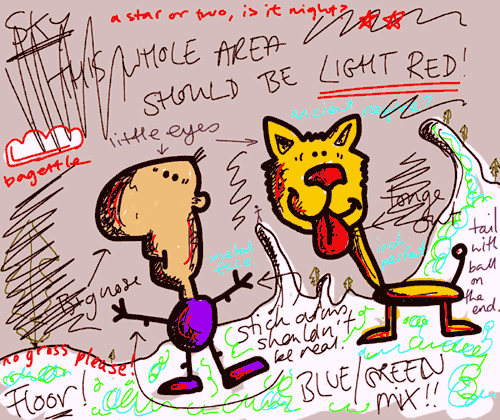 SKY
a star or two, is it night?
THIS WHOLE AREA
SHOULD BE LIGHT RED!
little eyes
bagettle
Big nose
tail with
ball on
the end.
stick arms,
shouldn't
be real.
no grass please!
FLOOR!
BLUE/GREEN
MIX!!